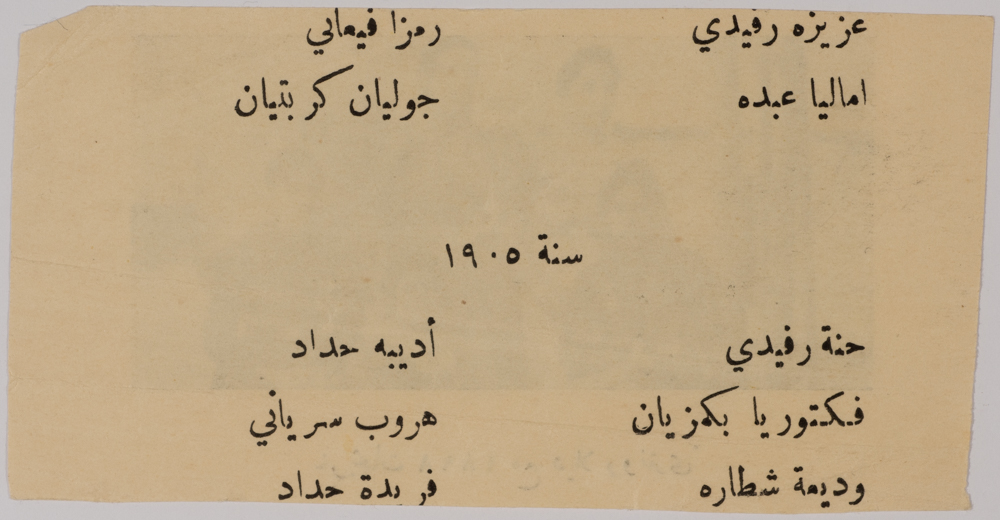 عزيزه رفيدي رمزا فيعاني
اماليا عبده جوليان كربتيان
سنة ١٩٠٥
حنة رفيدي أديبه حداد
فكتوريا بكمزيان هروب سرياني
وديعة شطاره فريدة حداد